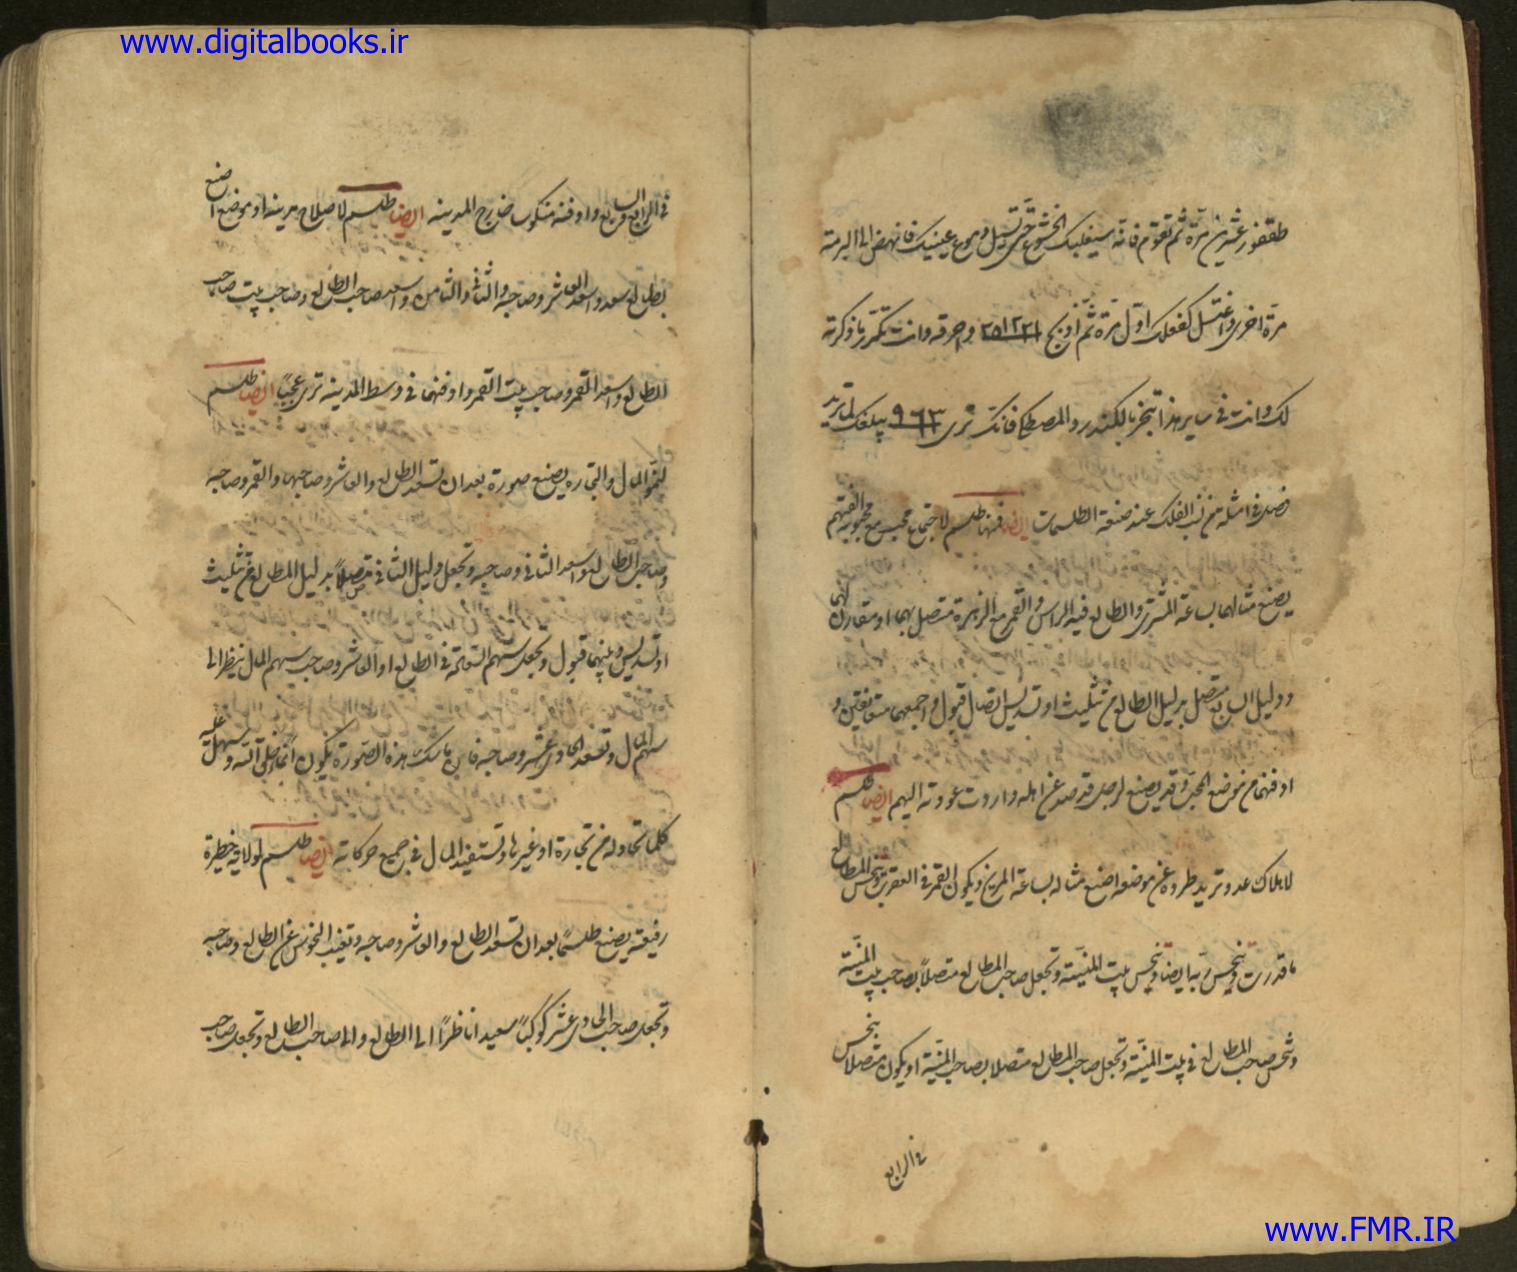 www.digitalbooks.ir
طقفور عشرين مرّة ثم تقوم فانه سيغلبك الخشوع حتّى تسيل دموع عينيك فانهض الى البرمة
مرّة اخرى واغتسل كفعلك اوّل مرّة ثمّ اذبح واحرقه وانت تكمّر ما ذكرته
لك وانت فى ساير هذا تبخر بالكندر والمصطكا فانك ترى ٩٦٣ يبلغك لما تريد
فصل فى امثله من نسب الفلك عند صنعة الطلسمات ايضا فمنها طلسم لاجتماع محب مع محبوبه الفتهم
يصنع مثالهما بساعة المشترى والطالع فيه الراس والقمر مع الزهرة متصل بهما او مقارن لهما
ودليل السابع متصل بدليل الطالع من تثليث او تسديس اتصال قبول واجمعهما متعانقين و
ادفنهما من موضع المحبّ وقد يصنع لرجل قد صد عن اهله واردت عودته اليهم ايضا طلسم
لاهلاك عدو تريد طرده عن موضعه اصنع مثاله بساعة المريخ ويكون القمر فى العقرب وتنحس الطالع
ما قدرت وتنحيس ربه ايضا وتنحيس بيت المنيّة وتجعل صاحب الطالع متصلاً بصاحب بيت المنيّة
وتنحس صاحب الطالع فى بيت المنيّة وتجعل صاحب الطالع متصلا بصاحب المنيّة او يكون متصلا بنحس
فى الرابع
فى الرابع والسابع وادفنه منكوسا خارج المدينه ايضا طلسم لاصلاح مدينه او موضع اصنع
بطالع سعد واسعد العاشر وصاحبه والثانى والثامن واسعد صاحب الطالع وصاحب بيت صاحب
الطالع واسعد القمر وصاحب بيت القمر وادفنها فى وسط المدينه ترى عجبًا ايضا طلسم
لنموّ المال والتجاره يصنع صورة بعد ان تسعد الطالع والعاشر وصاحبهما والقمر وصاحبه
وصاحب الطالع واسعد الثانى وصاحبه وتجعل دليل الثانى متصلاً بدليل الطالع من تثليث
او تسديس وبينهما قبول وتجعل سهم السعادة فى الطالع او العاشر وصاحب سهم المال ينظر الى
سهم المال وتسعد الحادى عشر وصاحبه فان ماسك هذه الصورة يكون وسهل عليه
كلما تحاوله من تجارة او غيرها وتستفيد المال فى جميع حركاته ايضا طلسم لولاية خطرة
رفيعة يصنع طلسمًا بعد ان تسعد الطالع والعاشر وصاحبه وتغيب النحوس عن الطالع وصاحبه
وتجعل صاحب الحادى عشر كوكبًا سعيدا ناظرًا الى الطالع والى صاحب الطالع وتجعل صاحب
www.FMR.IR